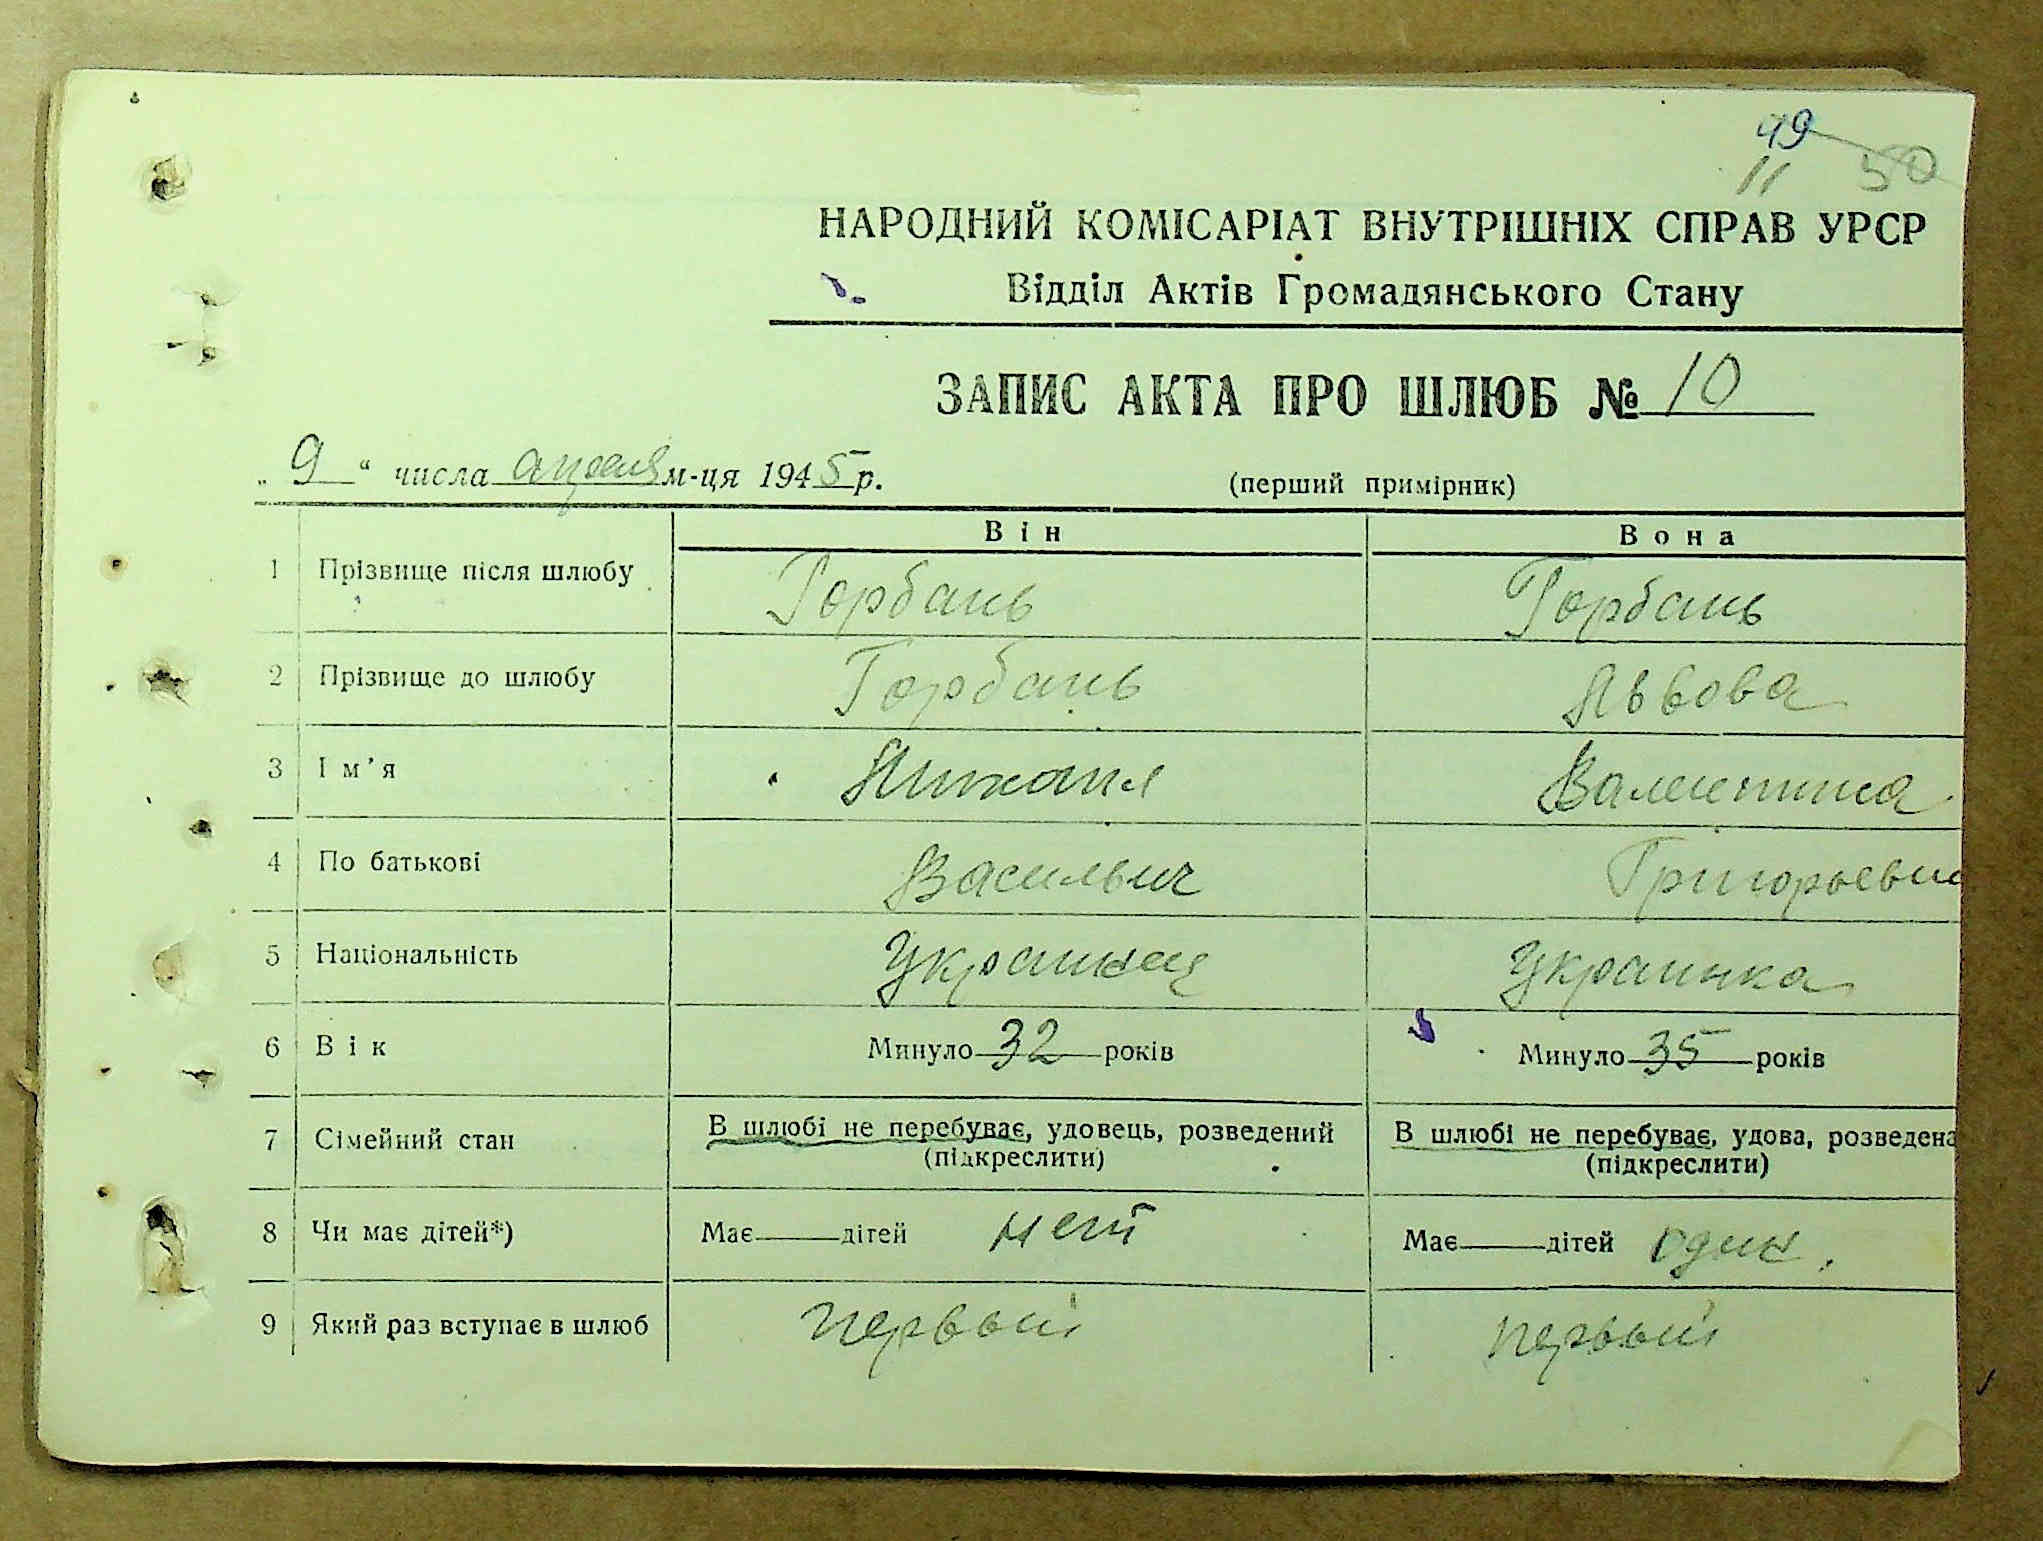 49
11 50
НАРОДНИЙ КОМІСАРІАТ ВНУТРІШНІХ СПРАВ УРСР
Відділ Актів Громадянського Стану
ЗАПИС АКТА ПРО ШЛЮБ № 10
„ 9 “ числа апреля м-ця 1945 р. (перший примірник)
Він Вона
1 Прізвище після шлюбу Горбань Горбань
2 Прізвище до шлюбу Горбань Львова
3 Ім’я Михаил Валентина
4 По батькові Васильвич Григорьевн
5 Національність Украинец Украинка
6 Вік Минуло 32 років Минуло 35 років
7 Сімейний стан В шлюбі не перебуває, удовець, розведений В шлюбі не перебуває, удова, розведена
(підкреслити) (підкреслити)
8 Чи має дітей*) Має дітей нет Має дітей один.
9 Який раз вступає в шлюб первый первый